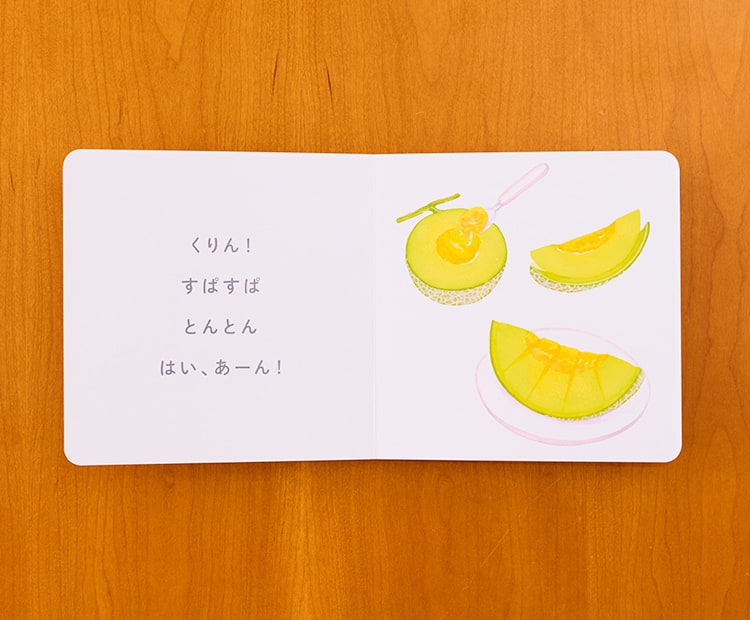 くりん！
すぱすぱ
とんとん
はい、あーん！